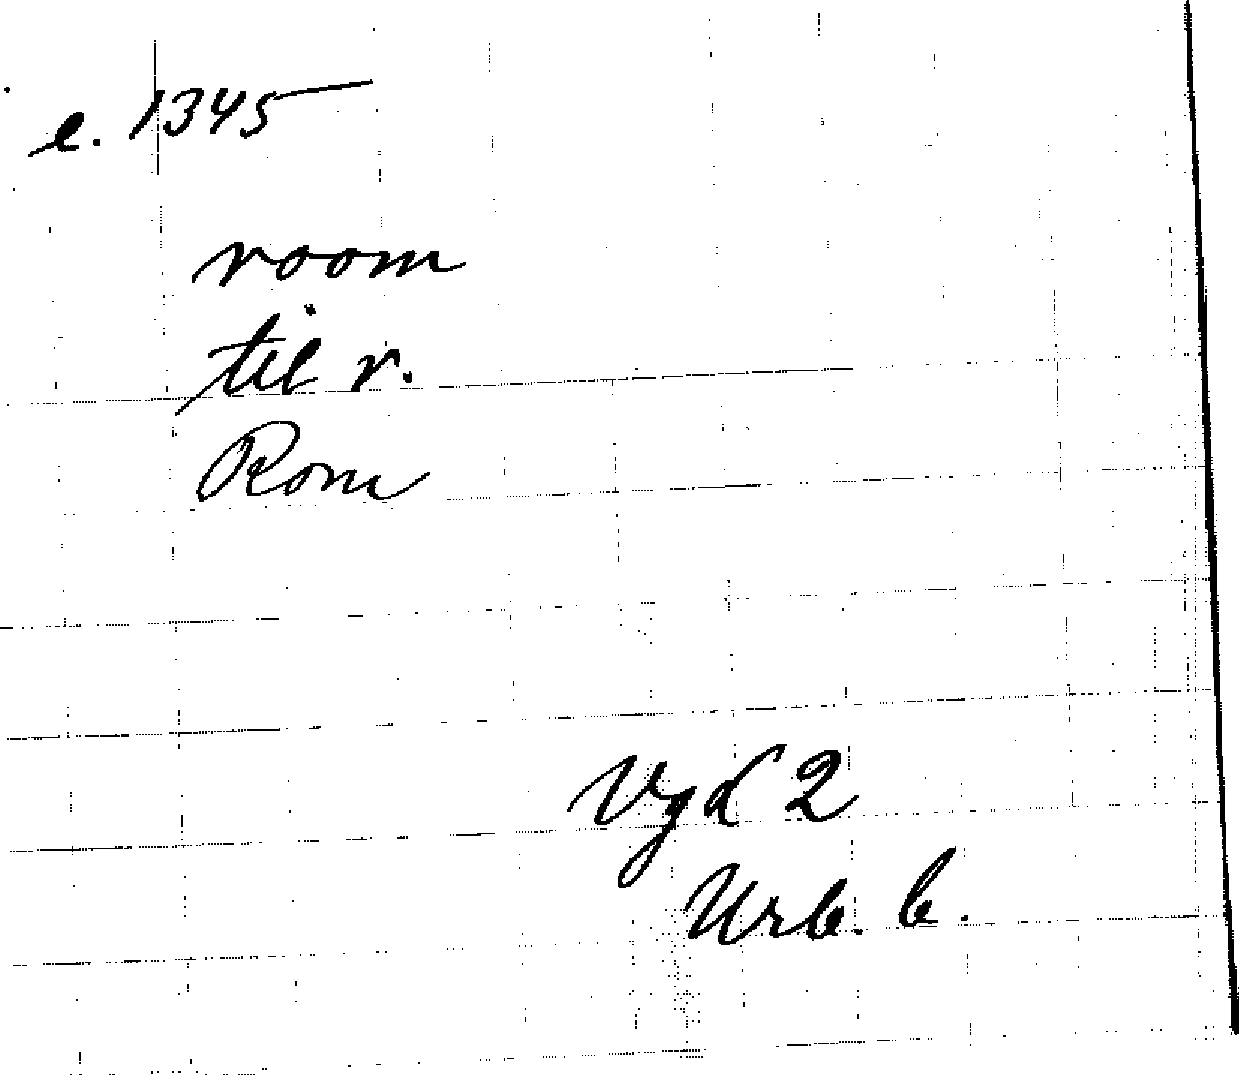 e. 1345
room
til r.
Rom
Vgd 2
Urb. b.